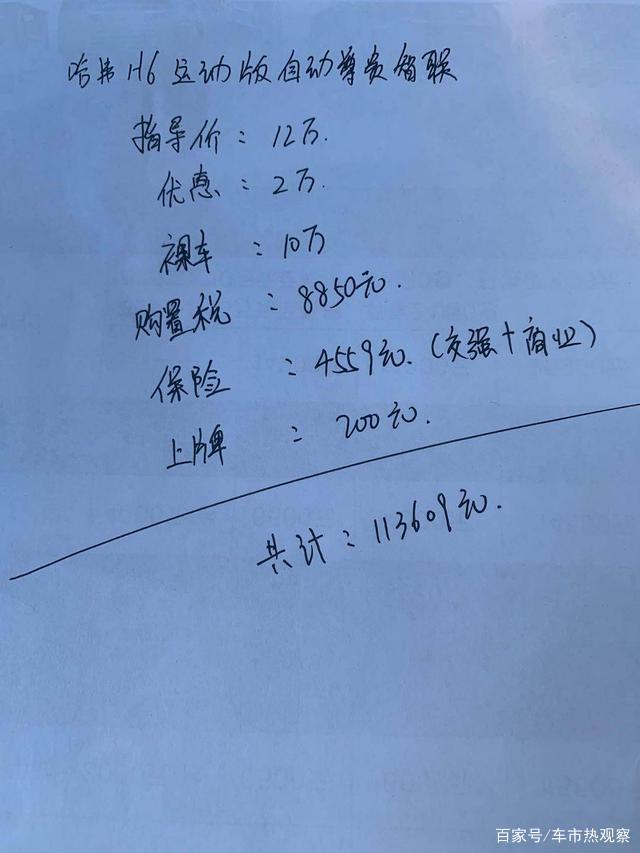 哈弗H6运动版自动尊贵智联
指导价：12万.
优惠：2万.
裸车：10万
购置税：8850元.
保险：4559元.(交强+商业)
上牌：200元.
共计：113609元.
百家号/车市热观察